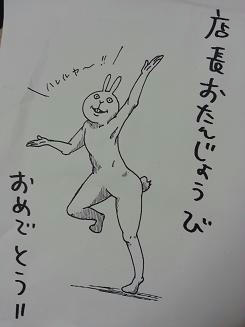 店長おたんじょうび
おめでとう!!
ハレルヤ〜!!